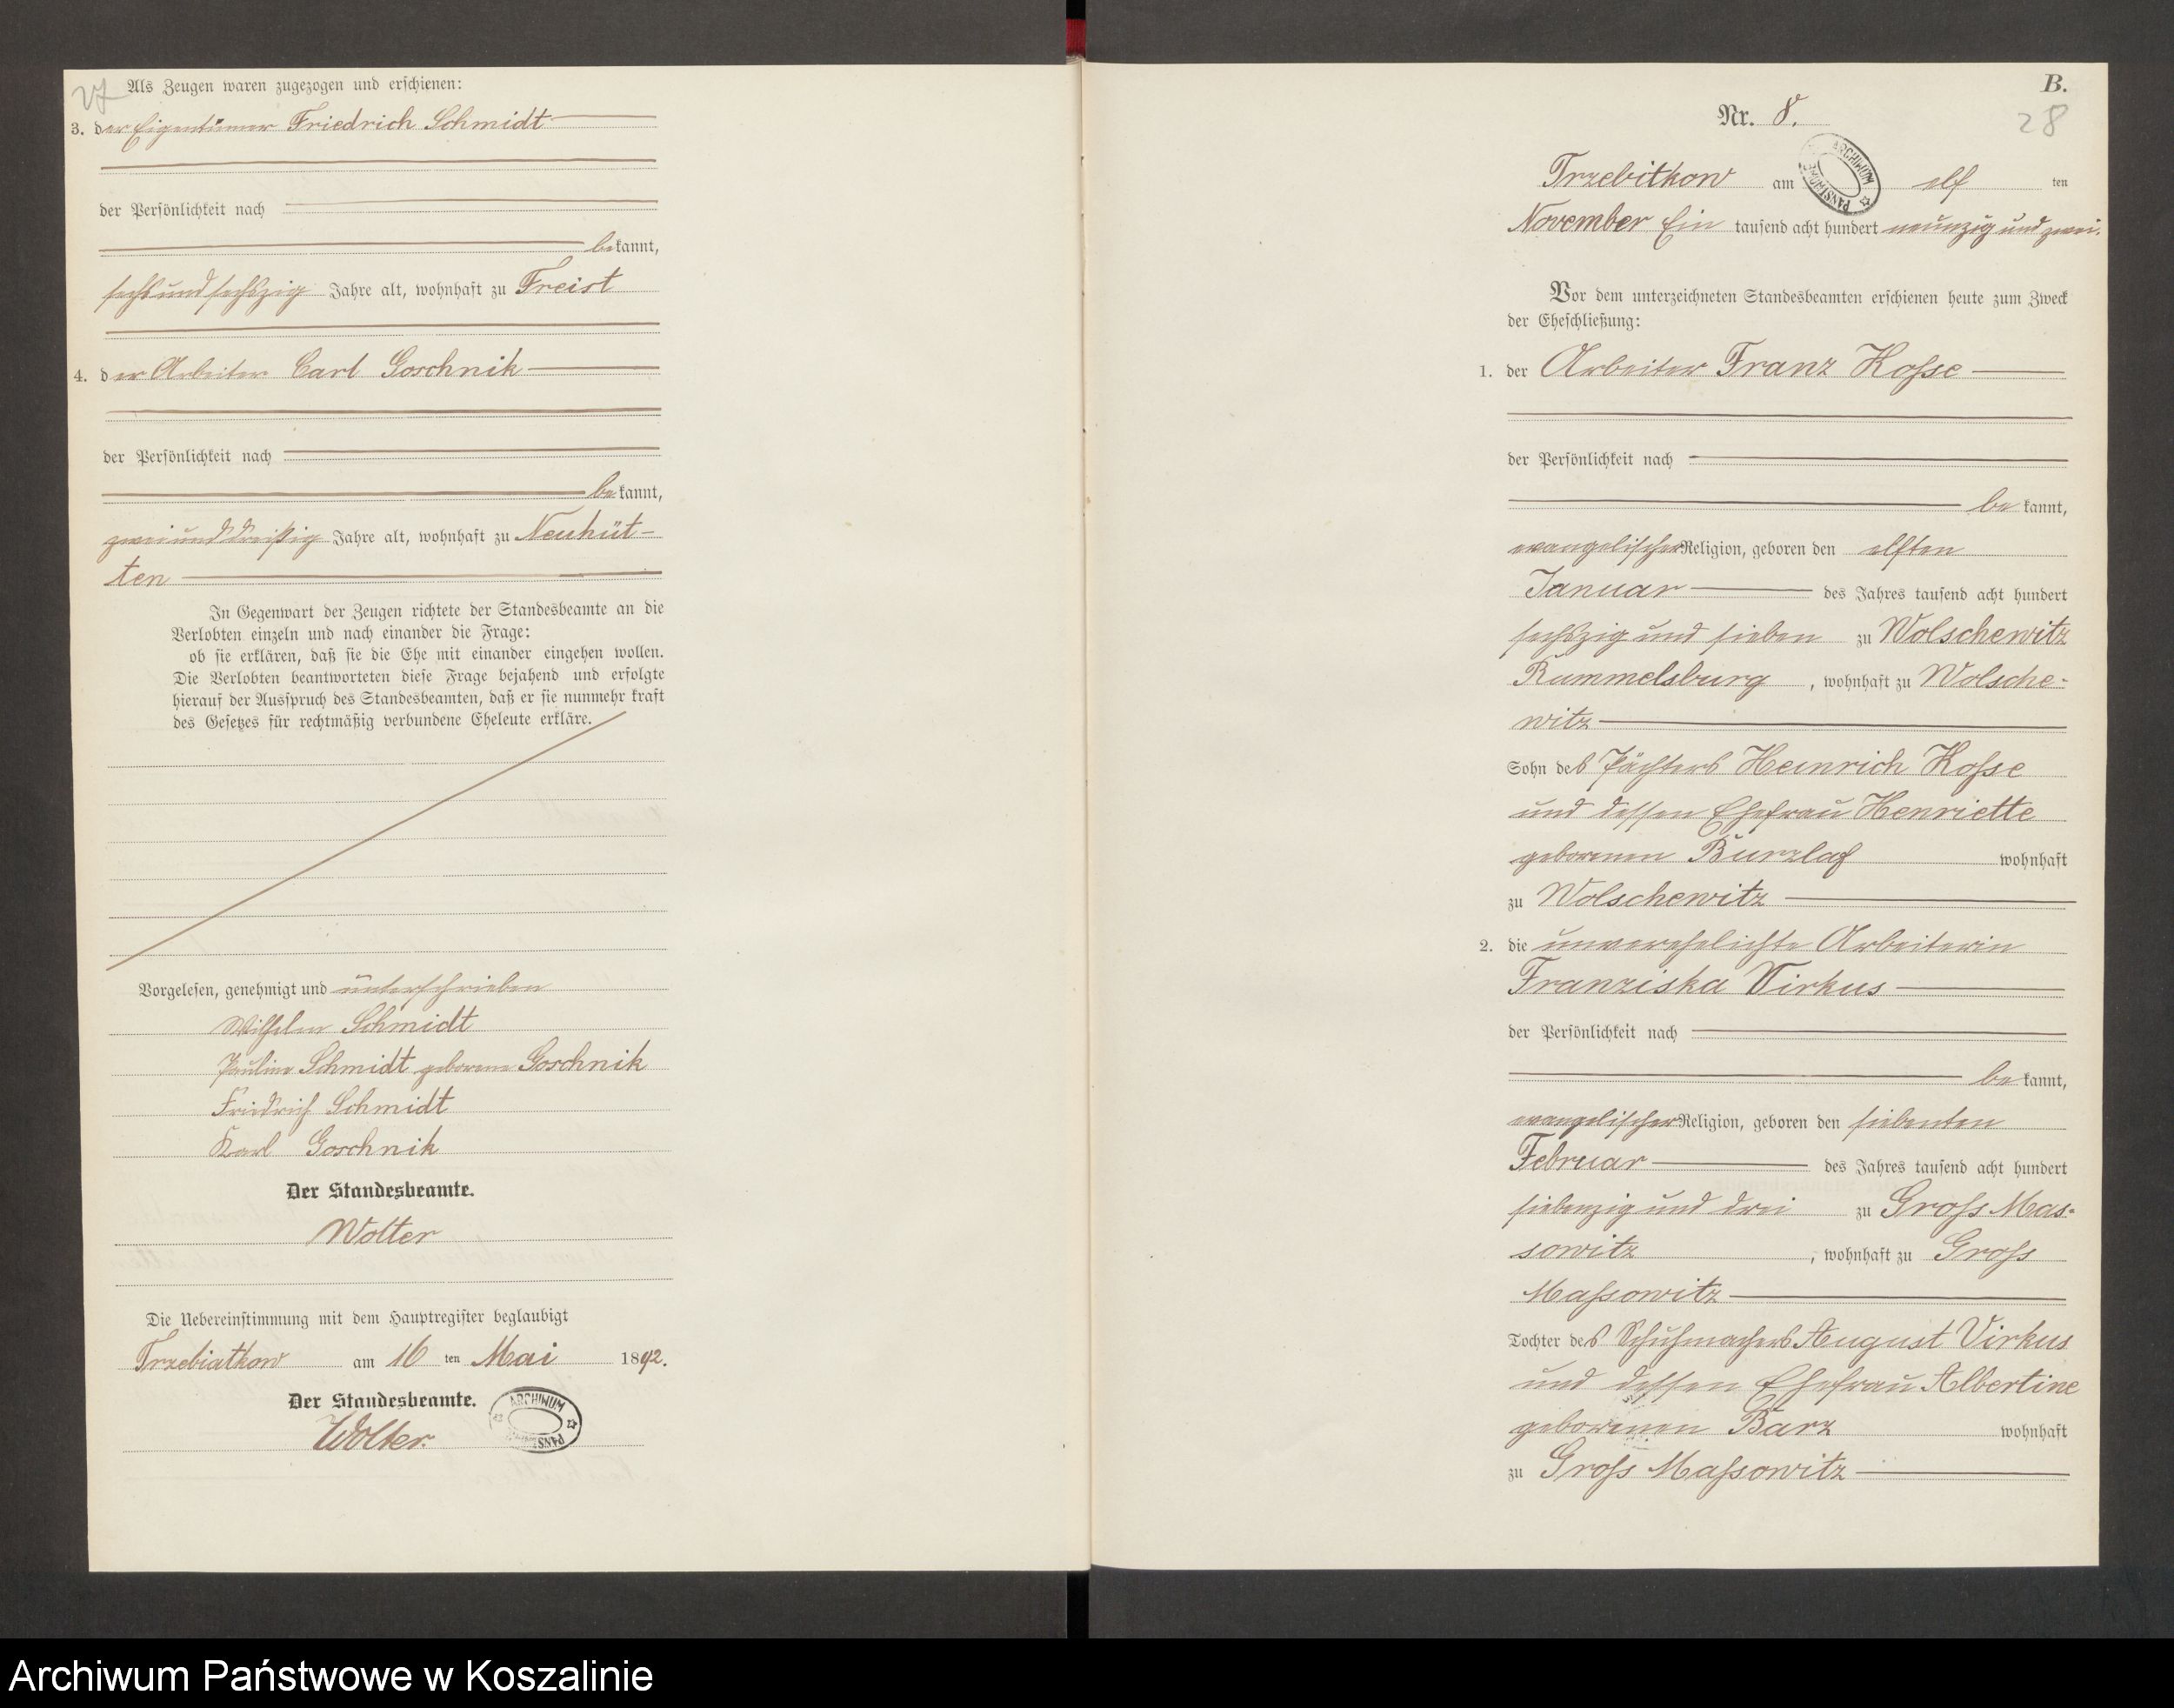 27
Als Zeugen waren zugezogen und erschienen:
3. der Eigentümer Friedrich Schmidt
der Persönlichkeit nach
bekannt,
sechs und sechszig Jahre alt, wohnhaft zu Freist
4. der Arbeiter Carl Goschnik
der Persönlichkeit nach
bekannt,
zwei und dreißig Jahre alt, wohnhaft zu Neuhüt-
ten
In Gegenwart der Zeugen richtete der Standesbeamte an die
Verlobten einzeln und nach einander die Frage:
ob sie erklären, daß sie die Ehe mit einander eingehen wollen.
Die Verlobten beantworteten diese Frage bejahend und erfolgte
hierauf der Ausspruch des Standesbeamten, daß er sie nunmehr kraft
des Gesetzes für rechtmäßig verbundene Eheleute erkläre.
Vorgelesen, genehmigt und unterschrieben
Wilhelm Schmidt
Pauline Schmidt geborene Goschnik
Friedrich Schmidt
Karl Goschnik
Der Standesbeamte.
Wolter
Die Uebereinstimmung mit dem Hauptregister beglaubigt
Trzebiatkow am 16 ten Mai 1892.
Der Standesbeamte.
Wolter.
ARCHIWUM PAŃST
B.
28
Nr. 8.
ARCHIWUM PAŃSTWOWE
Trzebitkow am elf ten
November Ein tausend acht hundert neunzig und zwei.
Vor dem unterzeichneten Standesbeamten erschienen heute zum Zweck
der Eheschließung:
1. der Arbeiter Franz Kosse
der Persönlichkeit nach
be kannt,
evangelischer Religion, geboren den elften
Januar des Jahres tausend acht hundert
sechszig und sieben zu Wolschewitz
Rummelsburg, wohnhaft zu Wolsche-
witz
Sohn des Pächters Heinrich Kosse
und dessen Ehefrau Henriette
geborenen Burzlaf wohnhaft
zu Wolschewitz
2. die unverehelichte Arbeiterin
Franziska Virkus
der Persönlichkeit nach
be kannt,
evangelischer Religion, geboren den siebenten
Februar des Jahres tausend acht hundert
siebenzig und drei zu Gross Mas-
sowitz, wohnhaft zu Gross
Massowitz
Tochter des Schuhmachers August Virkus
und dessen Ehefrau Albertine
geborenen Barz wohnhaft
zu Gross Massowitz
Archiwum Państwowe w Koszalinie